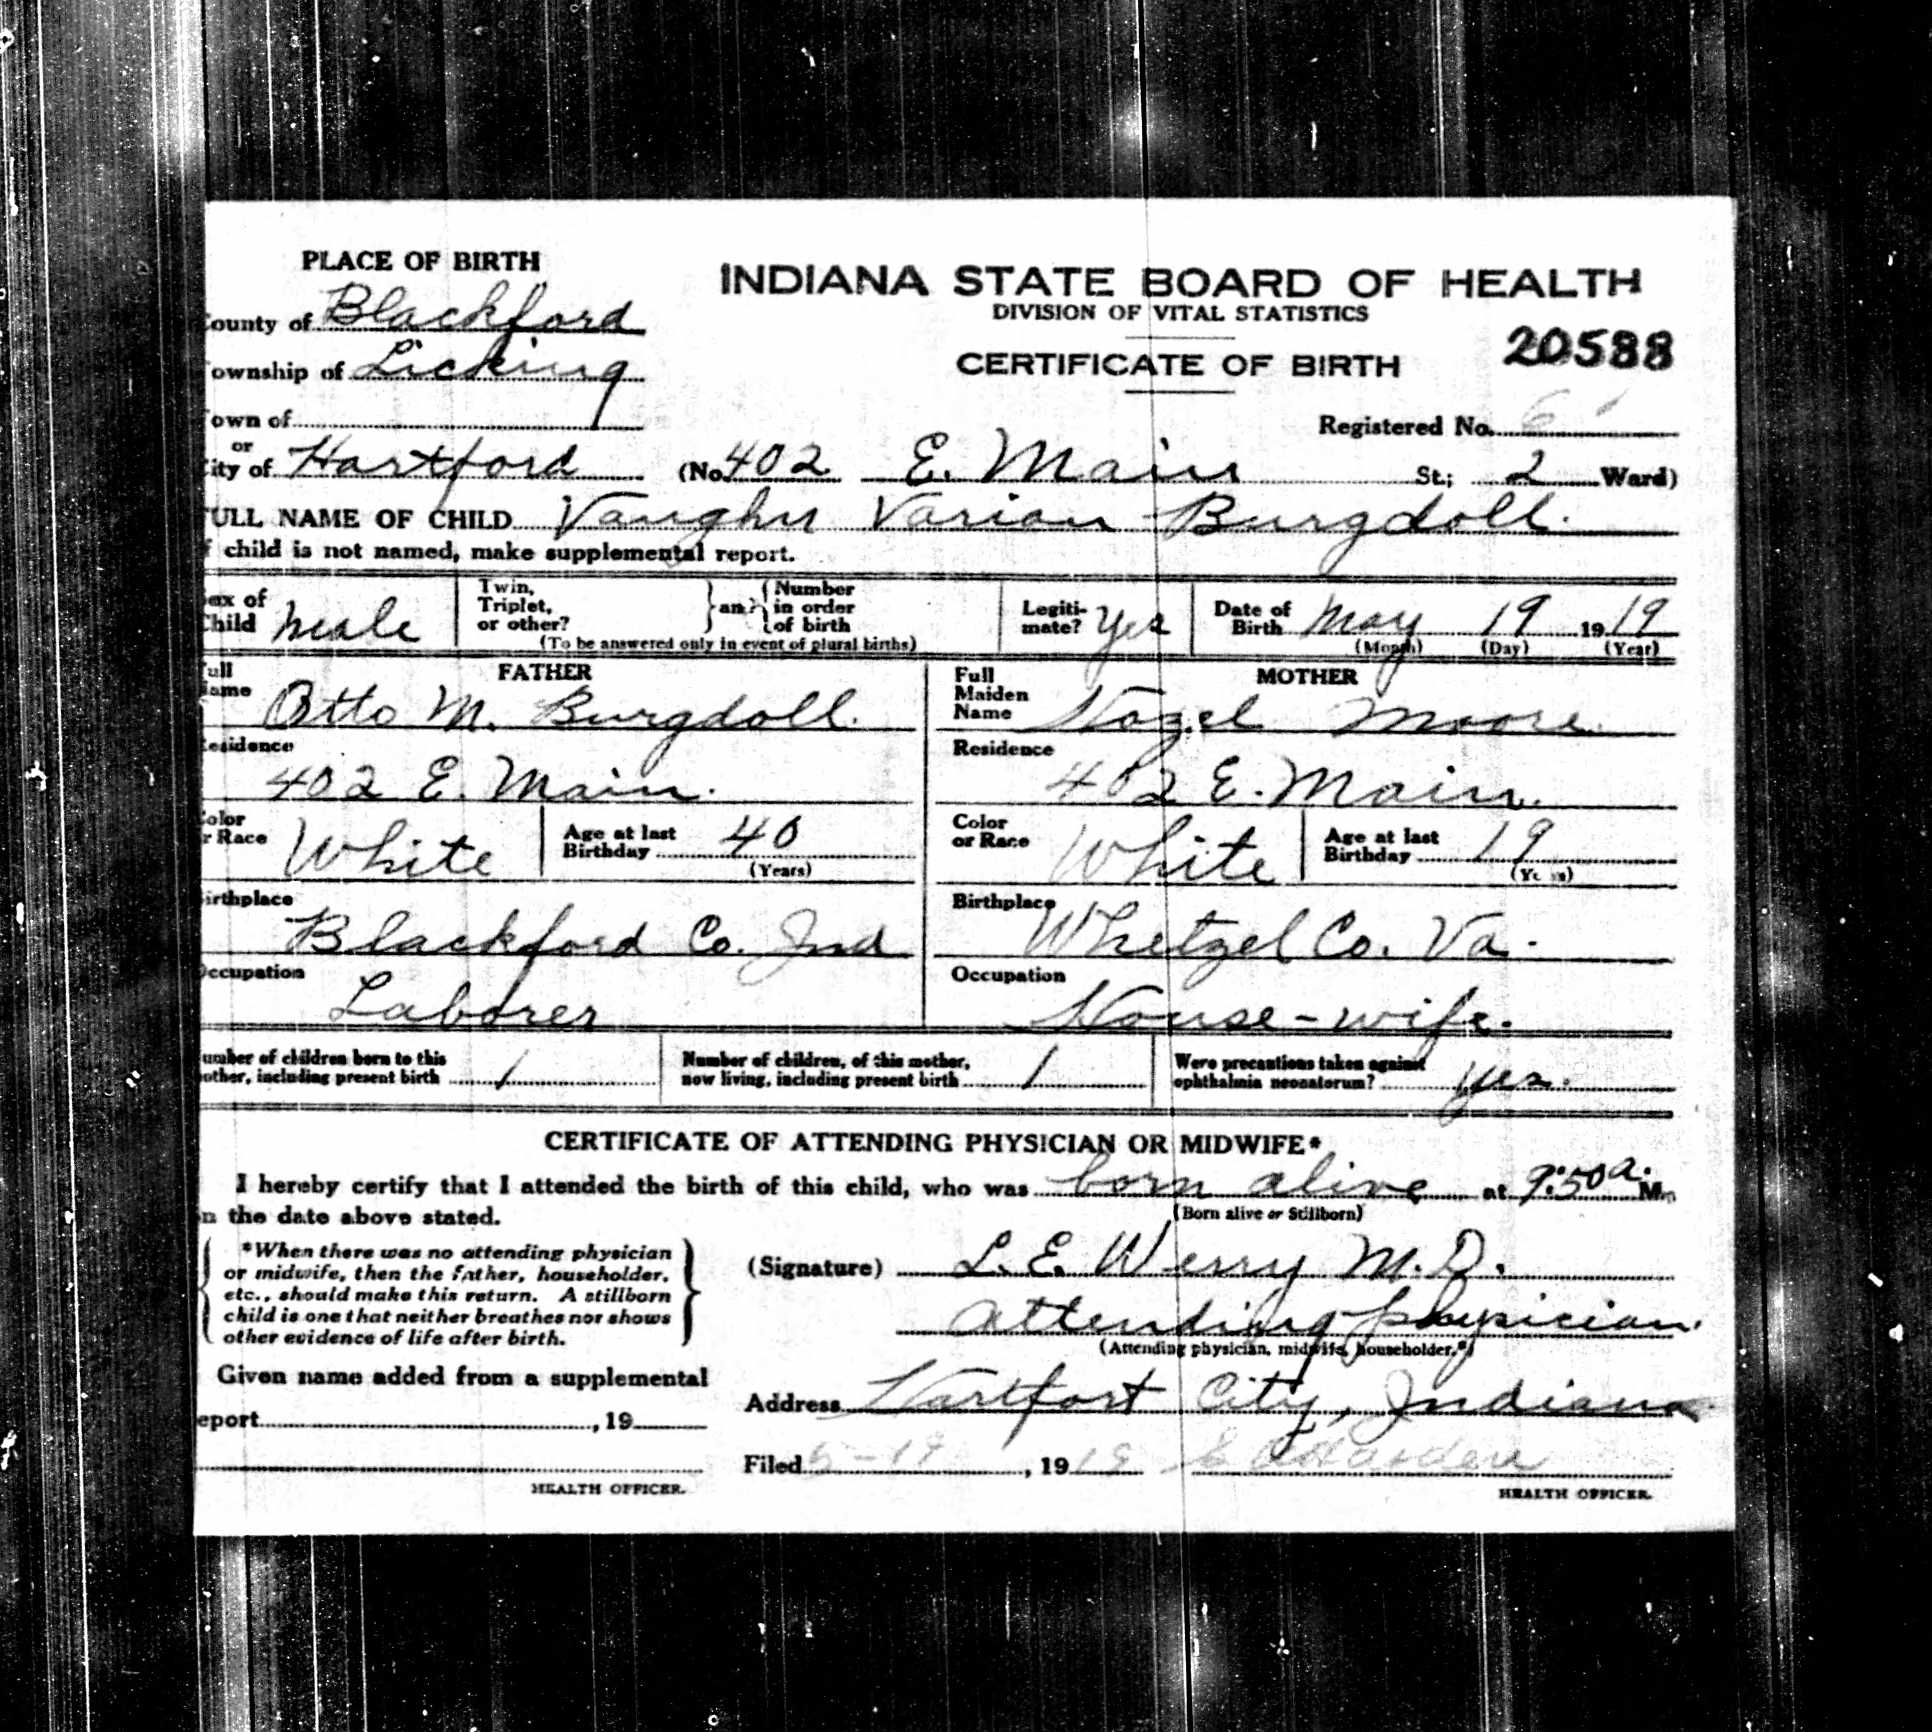 PLACE OF BIRTH
INDIANA STATE BOARD OF HEALTH
DIVISION OF VITAL STATISTICS
ounty of Blackford
20588
ownship of Licking
CERTIFICATE OF BIRTH
own of
Registered No.
or
ity of Hartford (No. 402 E. Main St.; 2 Ward)
ULL NAME OF CHILD Vaughn Varian Burgdoll.
f child is not named, make supplemental report.
ex of Child male
Twin, Triplet, or other?
and
Number in order of birth
(To be answered only in event of plural births)
Legiti-mate? Yes
Date of Birth May 19 1919
(Month) (Day) (Year)
FATHER
ull ame Otto M. Burgdoll.
MOTHER
Full Maiden Name Hazel Moore.
esidence
402 E. Main.
Residence
402 E. Main.
olor r Race White
Age at last Birthday 40
(Years)
Color or Race White
Age at last Birthday 19
(Years)
irthplace
Blackford Co. Ind
Birthplace
Whetzel Co. Va.
ccupation
Laborer
Occupation
House-wife.
umber of children born to this
other, including present birth 1
Number of children, of this mother,
now living, including present birth 1
Were precautions taken against
ophthalmia neonatorum? yes.
CERTIFICATE OF ATTENDING PHYSICIAN OR MIDWIFE*
I hereby certify that I attended the birth of this child, who was born alive at 9:50 a. M.
(Born alive or Stillborn)
n the date above stated.
*When there was no attending physician
or midwife, then the father, householder,
etc., should make this return. A stillborn
child is one that neither breathes nor shows
other evidence of life after birth.
(Signature) L. E. Werry M.D.
Attending physician.
(Attending physician, midwife, householder.*)
Given name added from a supplemental
eport , 19
HEALTH OFFICER.
Address Hartfort City, Indiana
Filed 5-19 , 1919
HEALTH OFFICER.